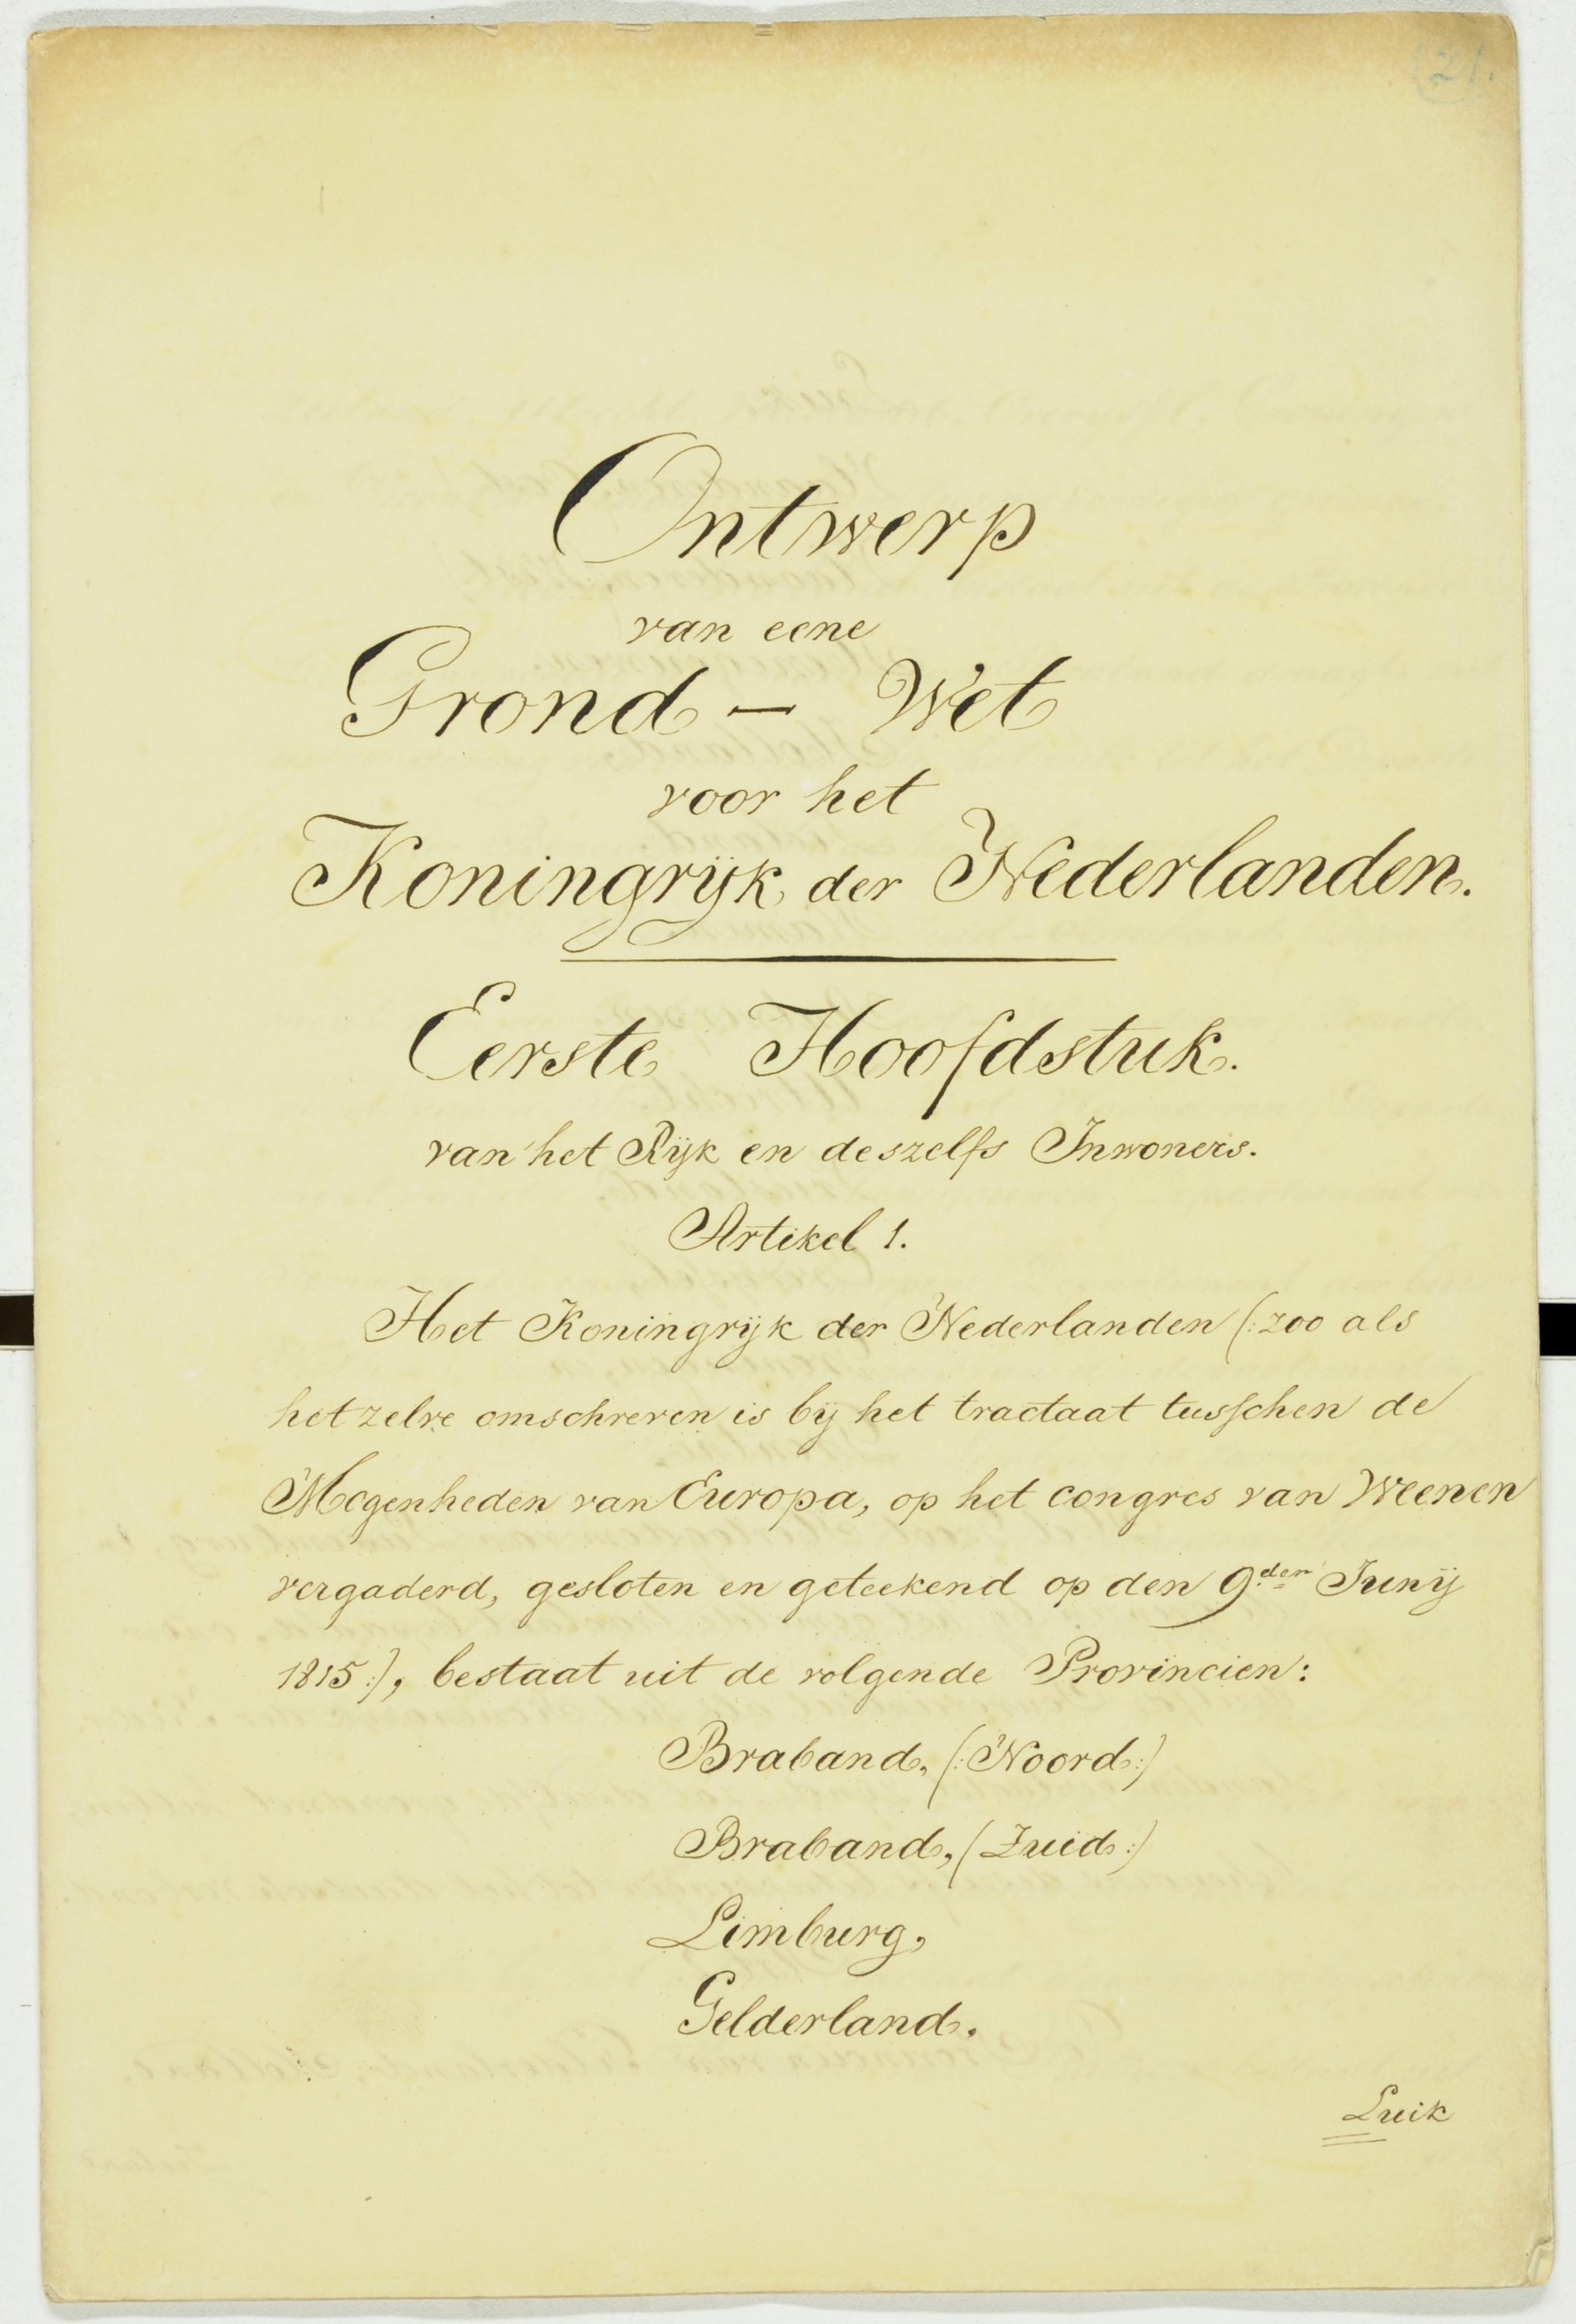 21.
Ontwerp
van eene
Grond — Wet
voor het
Koningrijk der Nederlanden.
Eerste Hoofdstuk.
van het Rijk en deszelfs Inwoners.
Artikel 1.
Het Koningrijk der Nederlanden (: zoo als
het zelve omschreven is bij het tractaat tusschen de
Mogenheden van Europa, op het congres van Weenen
vergaderd, gesloten en geteekend op den 9den Junij
1815 :), bestaat uit de volgende Provincien:
Braband, (: Noord :)
Braband, ( Zuid :)
Limburg,
Gelderland.
Luik